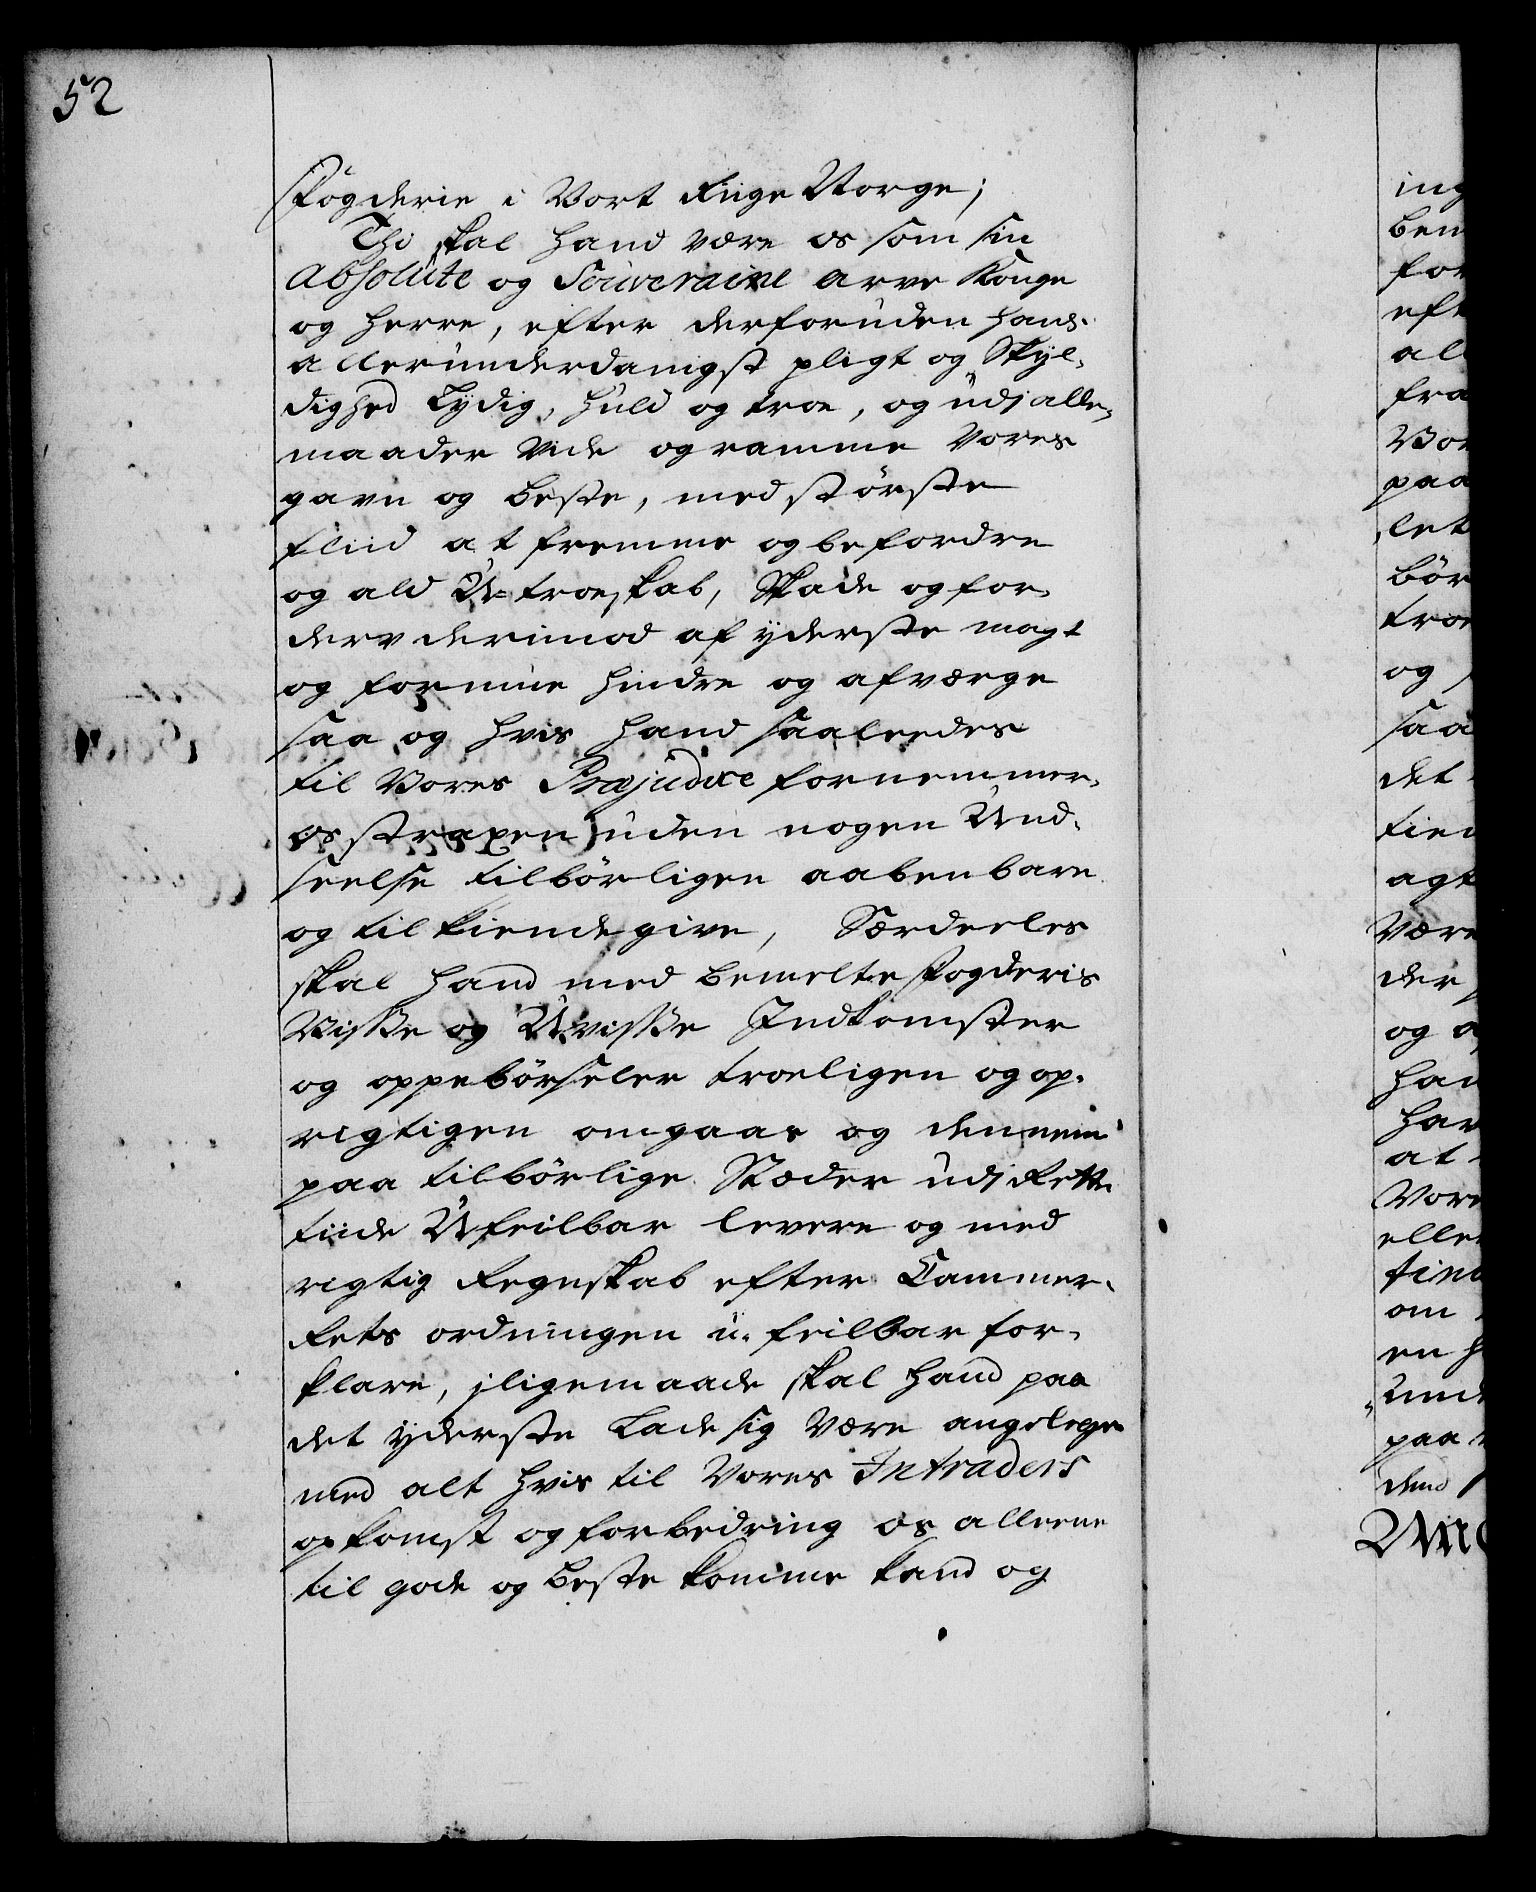 52
Fogderie i Vort Riige Norge;
Thi skal hand være os som sin
Absolute og Souveraine arve Konge
og Herre, efter derforuden hans
allerunderdanigst pligt og Skÿl-
dighed Lydig, huld og troe, og udj alle
maader vide og ramme Vores
gavn og beste, med største
fliid at fremme og befordre
og ald U-troeskab, Skade og for-
derv derimod af ÿderste magt
og formue hindre og afværge
saa og hvis hand saaleedes
til Vores Præjudice fornemmer,
os straxen uden nogen Und-
seelse tilbørligen aabenbare
og tilkiendegive, Særdeeles
skal hand med bemelte Fogderis
Visse og Uvisse Indkomster
og oppebørseler troeligen og op-
rigtigen omgaas og dennem
paa tilbørlige Stæder udj Rette
tiide Ufeilbar levere og med
rigtig Regnskab efter Cammer-
Rets ordningen u-feilbar for-
klare, jligemaade skal hand paa
det ÿderste Lade sig være angelegen
med alt hvis til Vores Intraders
opkomst og forbedring os alleene
til gode og beste komme kand og
ing
bem
for
eft
all
fra
Vor
paa
let
bør
troe
og
saa
det
tien
agt
være
der
og
han
har
at
Vore
eller
tiend
om
en
und
paa
dend